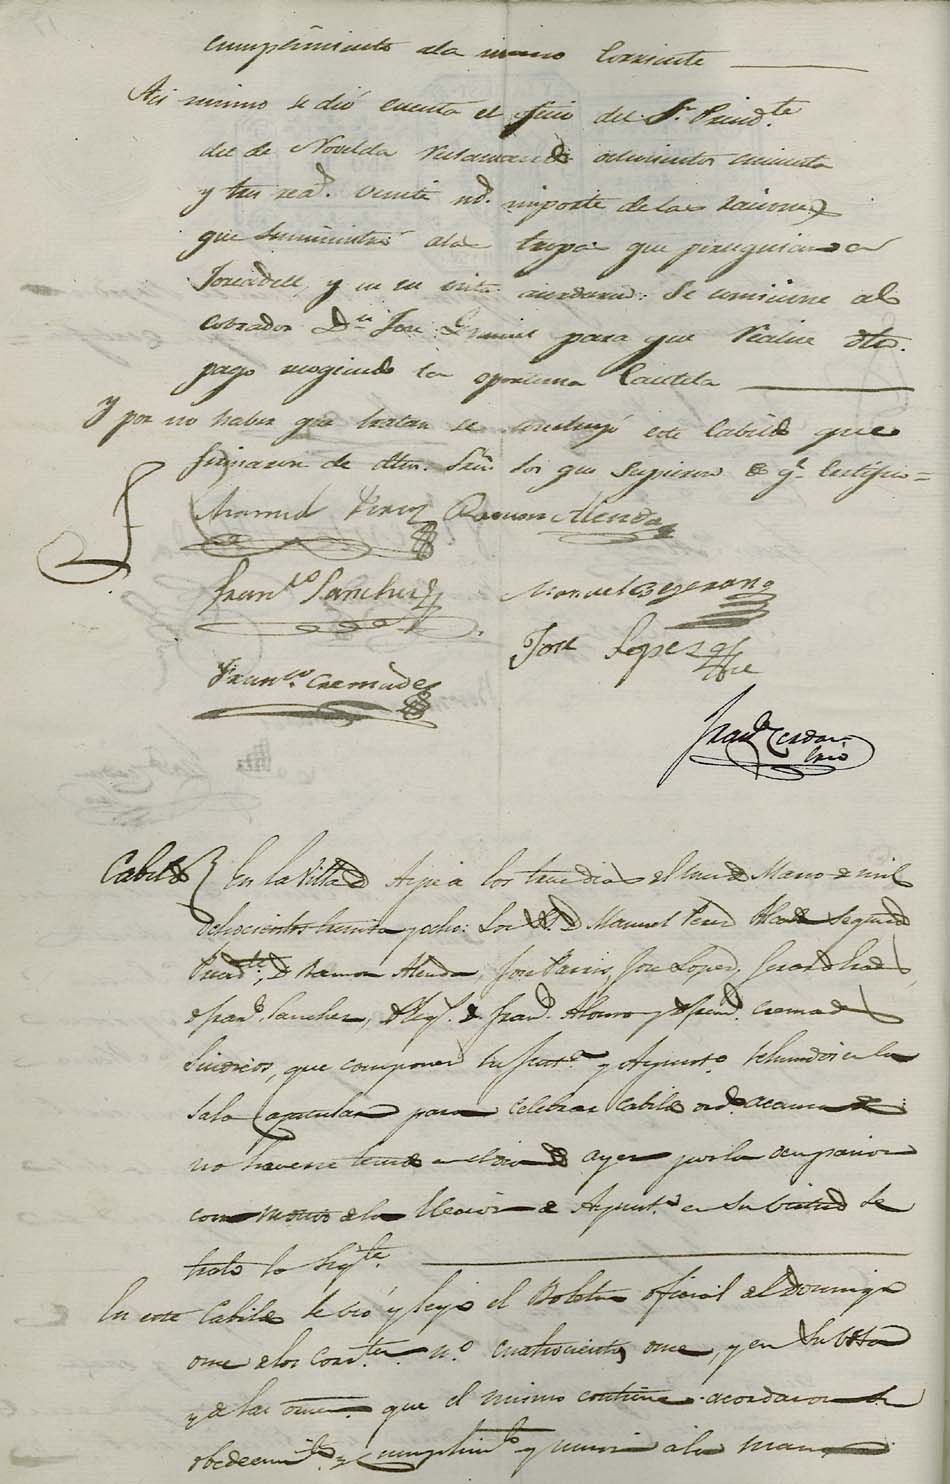 cumplimiento ala mano Corriente
Asi mismo se dió cuenta el oficio del Sr. Presid.te
del de Novelda reclamando ochocientos cincuenta
y tres rea.s veinte m.s importe de las raciones
que suministró ala tropa que perseguian a
Forcadell, y en su vista acordaron: Se comisione al
cobrador D.n Jose para que realise dho.
pago recogiendo la oportuna Cautela
Y por no haber que tratar se concluyó este Cabildo que
firmaron de dhos. Sres. los que supieron de q.e Certifico =
Manuel Perez Ramon Alenda
Fran.co Sanchez Manuel Bejerano
Jose Lopez
Fran.co Cremades
Fran.co Cerdan
Srio
Cabildo En la Villa de Aspe a los trece dias del mes de Marzo de mil
ochocientos treinta y ocho: Los S.S. D. Manuel Perez Alcalde segundo
Presid.te, D. Ramon Alenda, Jose Pavia, Jose Lopez,
Fran.co Sanchez, Reg.s D. Fran.co Alonso y D. Fran.co Cremades
Sindicos, que componen su Ayunt.o rehunidos en la
Sala Capitular para celebrar Cabildo ord.o acausa de
no haverse tenido en el dia de ayer por la ocupacion
con motivo de la Eleccion de Ayunt.o en su virtud se
trató lo sig.te
En este Cabildo se vió y leyó el Boletin oficial del Domingo
once de los corr.tes n.o cuatrocientos once, y en su vista
y de las orns. que el mismo contiene acordaron su
obedecim.to y cumplim.to y unir a la mano